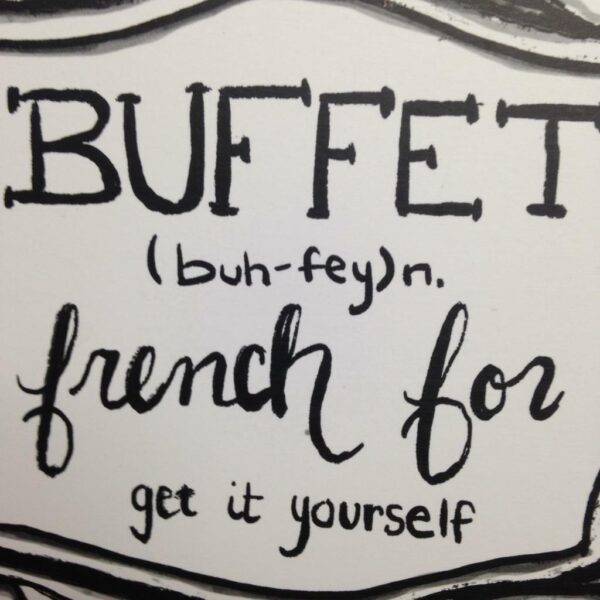 BUFFET
(buh-fey)n.
french for
get it yourself